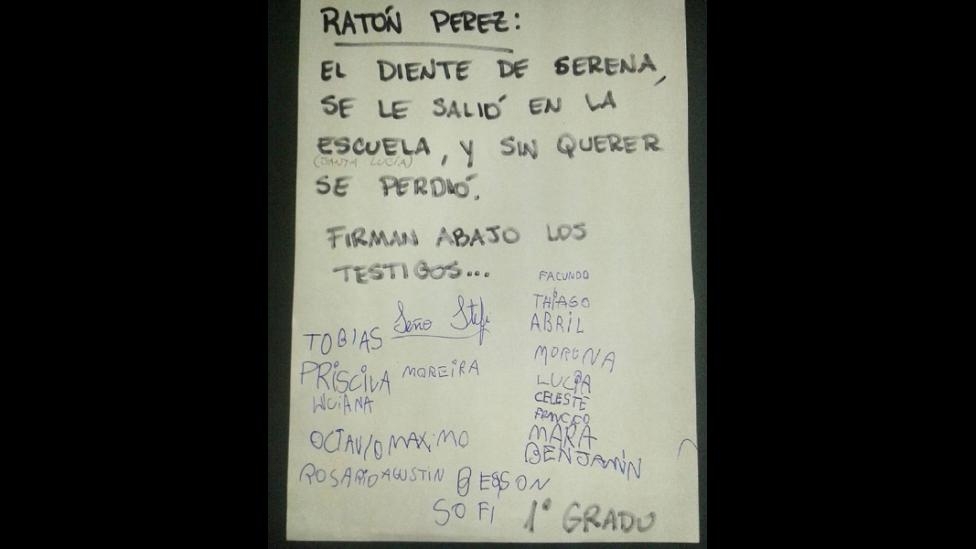 RATÓN PEREZ:
EL DIENTE DE SERENA,
SE LE SALIÓ EN LA
ESCUELA, Y SIN QUERER
(SANTA LUCÍA)
SE PERDIÓ.
FIRMAN ABAJO LOS
TESTIGOS...
TOBIAS Seño Stefi
PRISCILA MOREIRA
LUCIANA
OCTAVIO MAXIMO
ROSARIO AGUSTIN
SOFI
FACUNDO
THIAGO
ABRIL
MORENA
LUCIA
CELESTE
MARA
BENJAMIN
1° GRADO